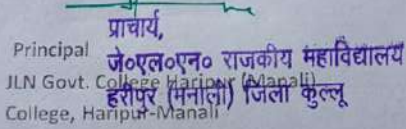 प्राचार्य,
Principal
जे०एल०एन० राजकीय महाविद्यालय
JLN Govt. College Haripur (Manali)
हरीपुर (मनाली) जिला कुल्लू
College, Haripur-Manali